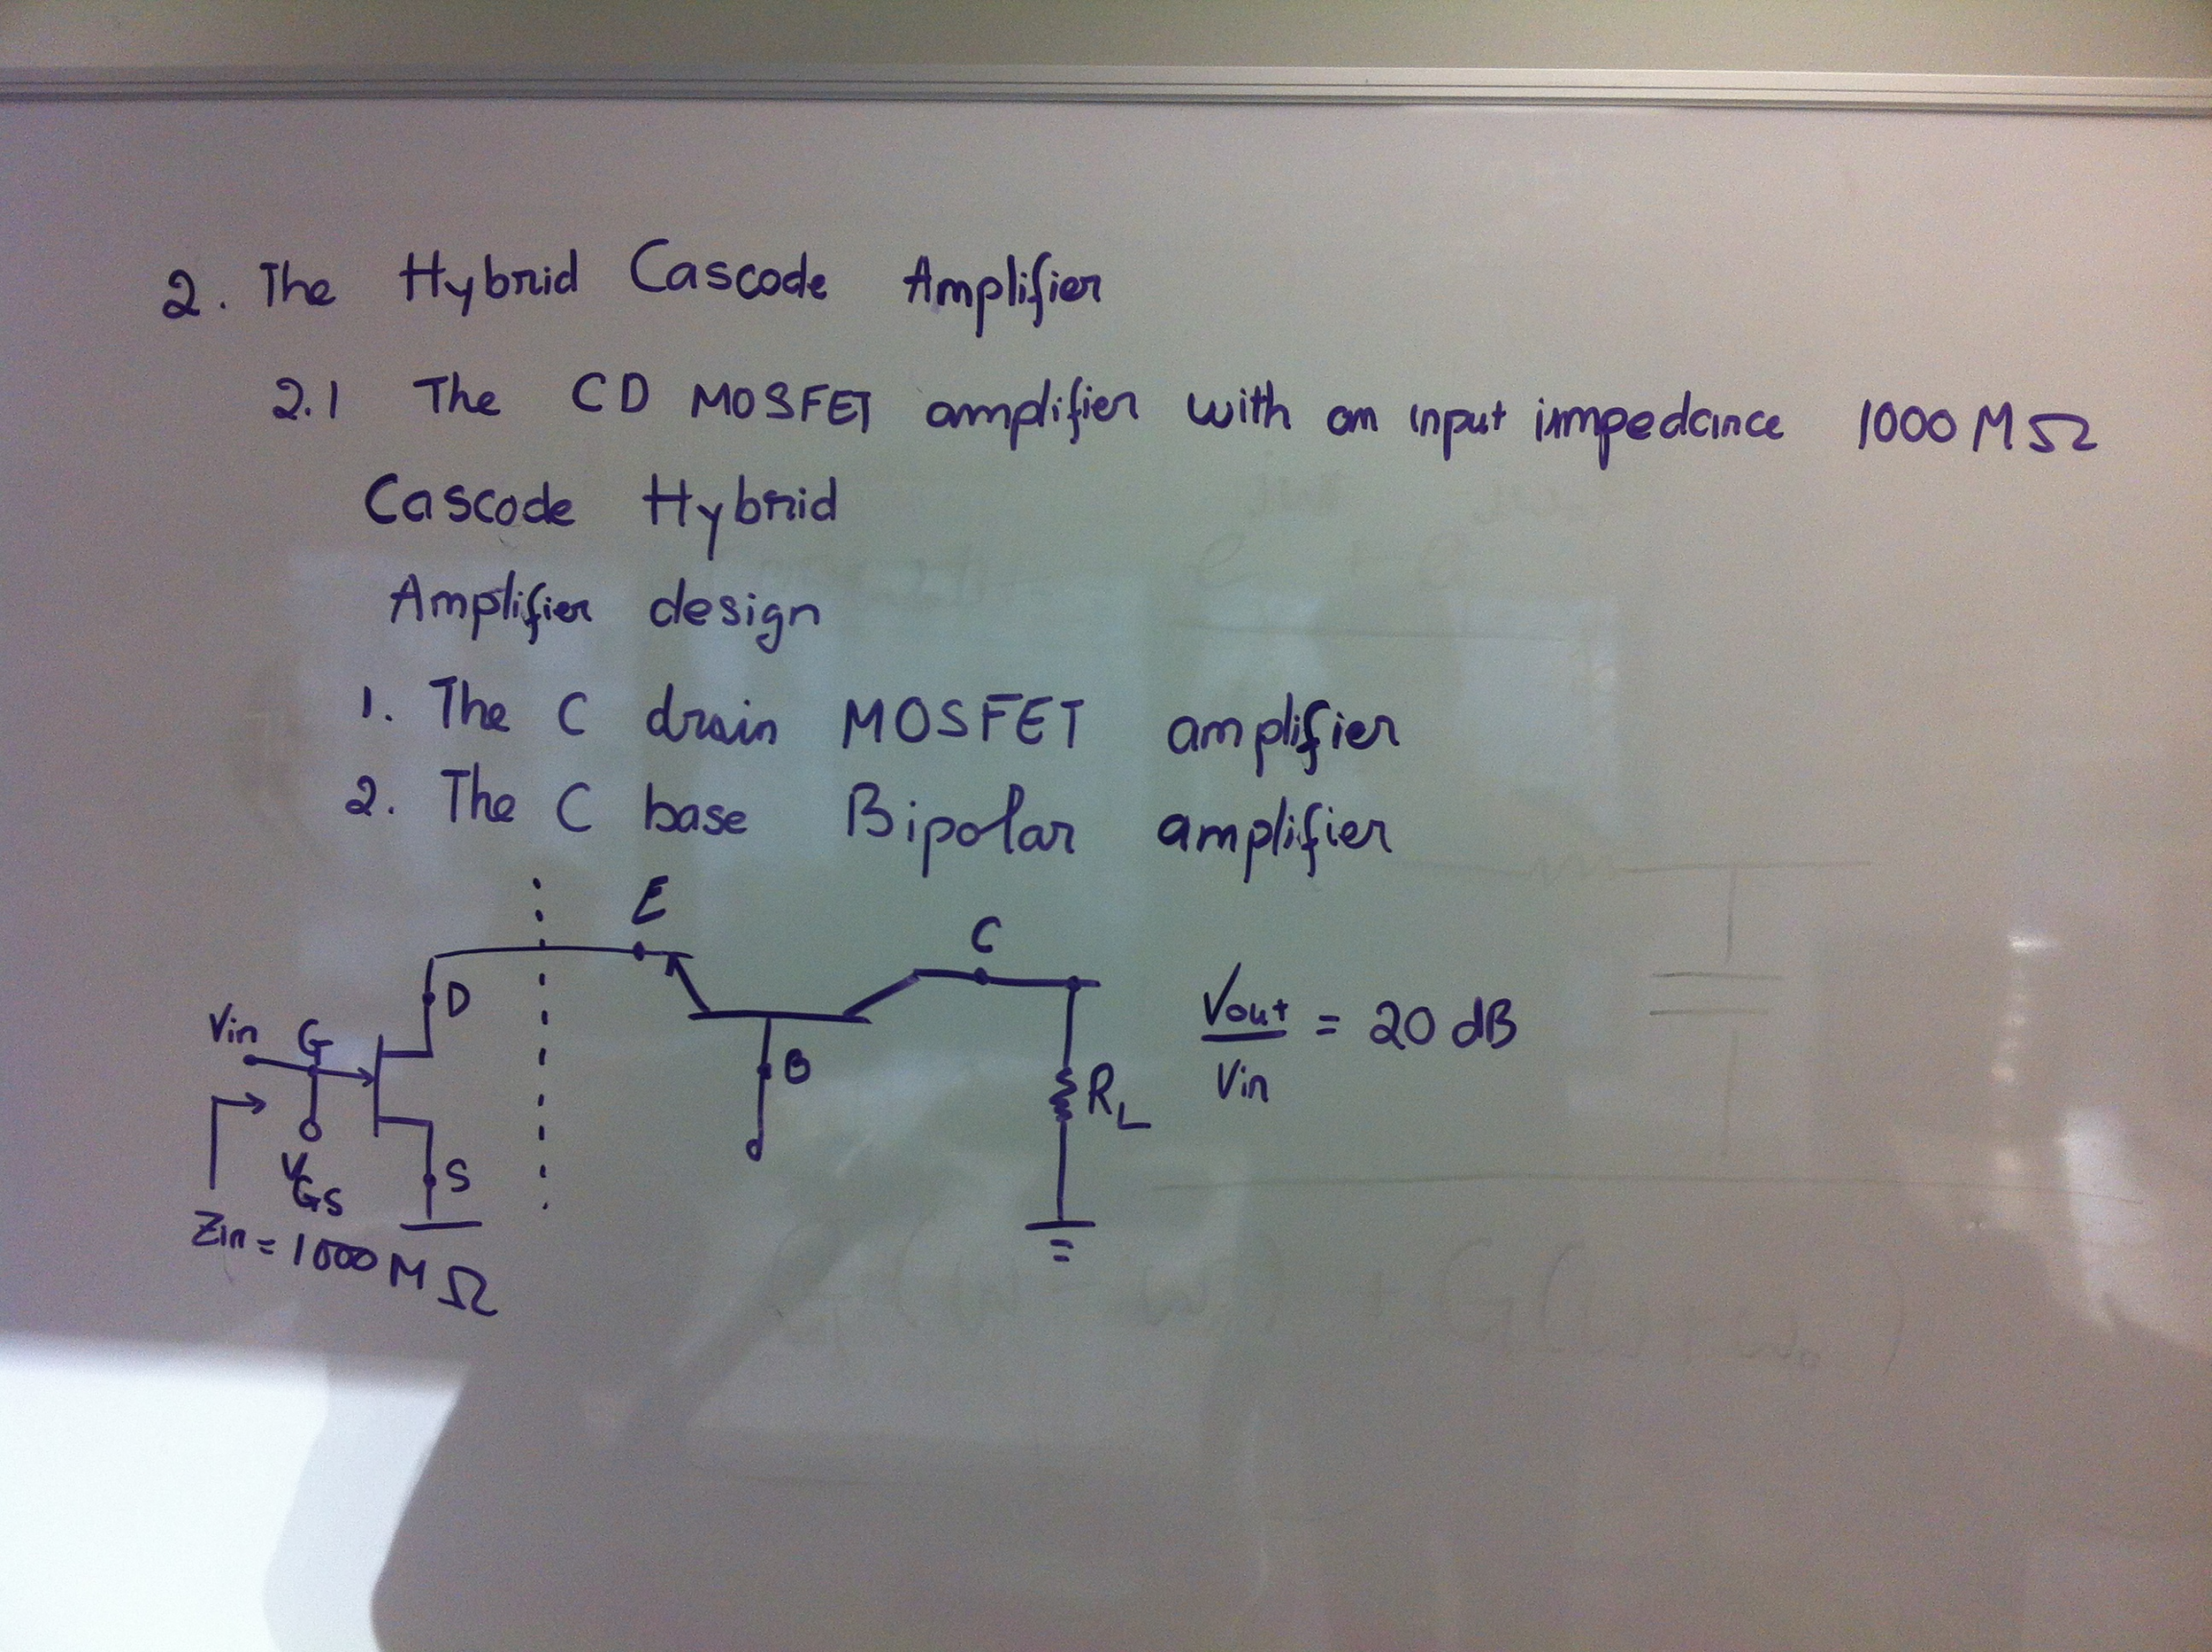 2. The Hybrid Cascode Amplifier
2.1 The CD MOSFET amplifier with an input impedance 1000 MΩ
Cascode Hybrid
Amplifier design
1. The C drain MOSFET amplifier
2. The C base Bipolar amplifier
E
C
D
Vin G
B
Vout / Vin = 20 dB
RL
S
VGS
Zin = 1000 MΩ